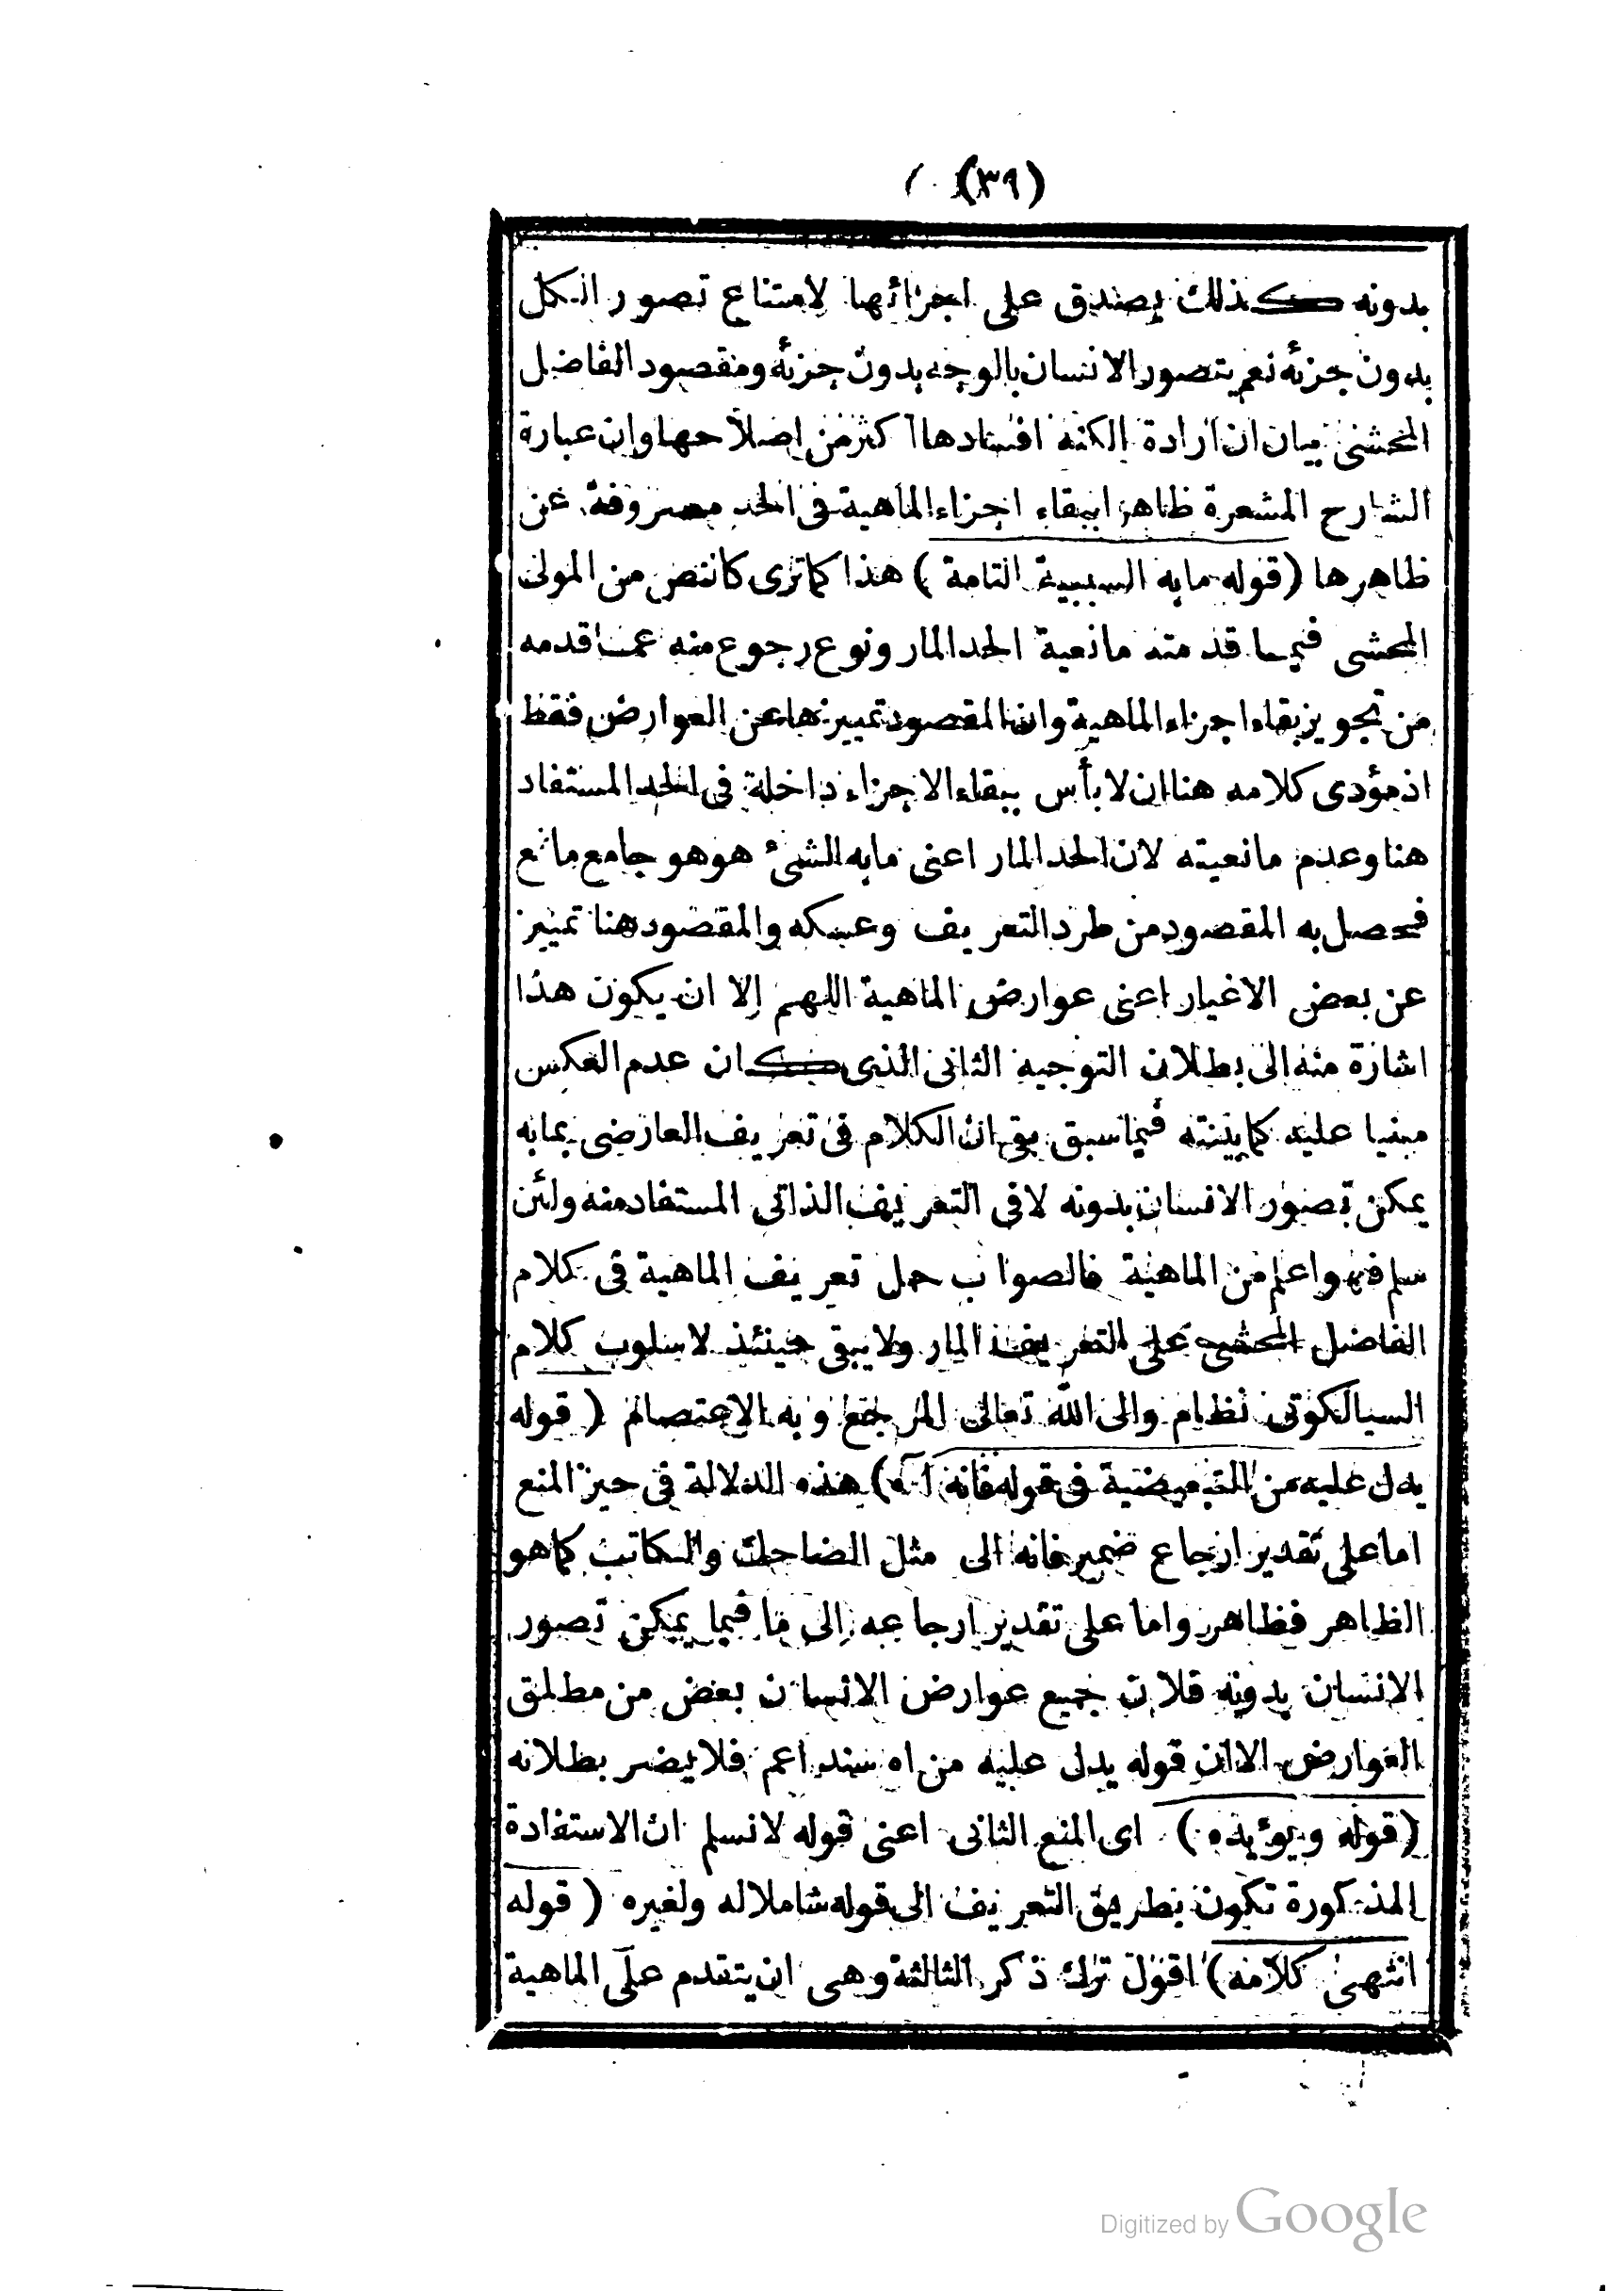 (٣٩)
بدونه كذلك يصدق على اجزائها لامتناع تصور الكل
بدون جزئه نعم يتصور الانسان بالوجه بدون جزئه ومقصود الفاضل
المحشى بيان ان ارادة الكنه افسادها اكثر من اصلاحها وان عبارة
الشارح المشعرة ظاهرا ببقاء اجزاء الماهية فى الحد مصروفة عن
ظاهرها (قوله مابه السببية التامة) هذا كماترى كانتص من المولى
المحشى فيما قدمته مانعية الحد المار ونوع رجوع منه عما قدمه
من تجويز بقاء اجزاء الماهية وان المقصود تمييزها عن العوارض فقط
اذ مؤدى كلامه هنا ان لا بأس ببقاء الاجزاء داخلة فى الحد المستفاد
هنا وعدم مانعيته لان الحد المار اعنى مابه الشئ هوهو جامع مانع
فحصل به المقصود من طرد التعريف وعكسه والمقصود هنا تمييز
عن بعض الاغيار اعنى عوارض الماهية اللهم الا ان يكون هذا
اشارة منه الى بطلان التوجيه الثانى الذى كان عدم العكس
مبنيا عليه كما بينته فيما سبق بقى ان الكلام فى تعريف العارضى بمابه
يمكن تصور الانسان بدونه لا فى التعريف الذاتى المستفاد منه ولئن
سلم فهو اعم من الماهية فالصواب حمل تعريف الماهية فى كلام
الفاضل المحشى على التعريف المار ولا يبقى حينئذ لاسلوب كلام
السيالكوتى نظام والى الله تعالى المرجع وبه الاعتصام (قوله
يدل عليه من التبعيضية فى قوله فانه اه) هذه الدلالة فى حيز المنع
اما على تقدير ارجاع ضمير فانه الى مثل الضاحك والكاتب كما هو
الظاهر فظاهر واما على تقدير ارجاعه الى ما فيما يمكن تصور
الانسان بدونه فلان جميع عوارض الانسان بعض من مطلق
العوارض الا ان قوله يدل عليه من اه سند اعم فلا يضر بطلانه
(قوله ويؤيده) اى المنع الثانى اعنى قوله لانسلم ان الاستفادة
المذكورة تكون بطريق التعريف الى قوله شاملا له ولغيره (قوله
انتهى كلامه) اقول ترك ذكر الثالثة وهى ان يتقدم على الماهية
Digitized by Google